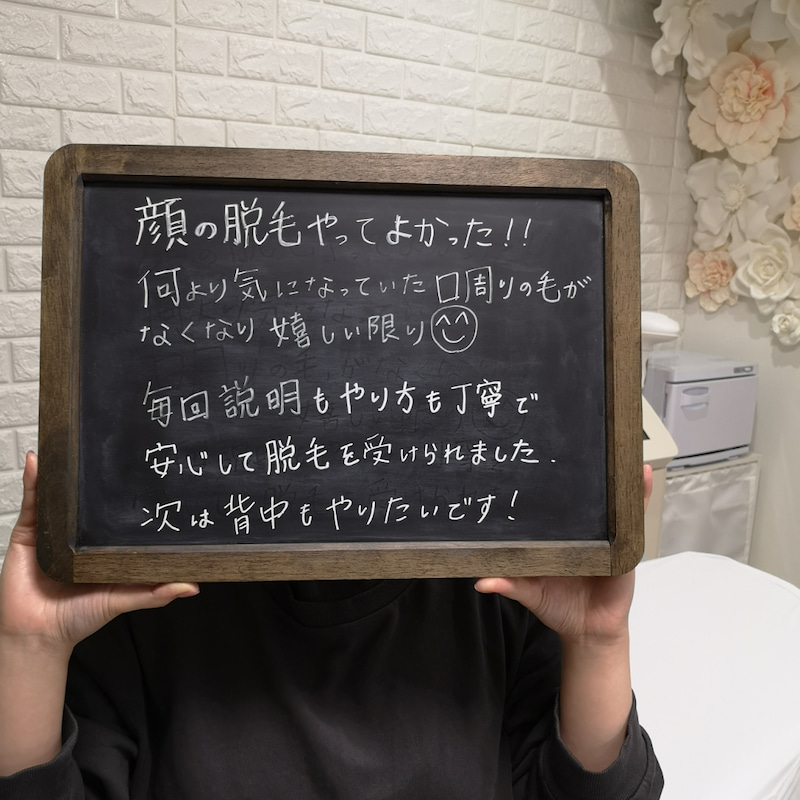 顔の脱毛やってよかった!!
何より気になっていた口周りの毛が
なくなり嬉しい限り
毎回説明もやり方も丁寧で
安心して脱毛を受けられました.
次は背中もやりたいです!